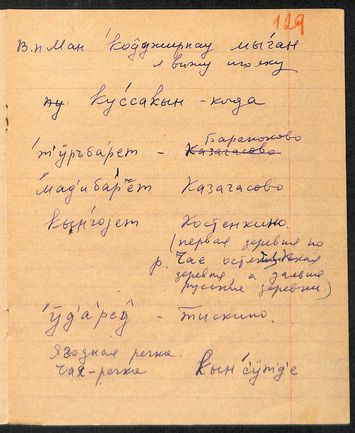 129
В.п Ман 'коджирнау мы́ган
я вижу иголку
ку́ссакын - когда
'т'ӱръба́рет - Бараноково
Казагасово
'мад'иба́рет Казагасово
кын'го́jет Костенкино.
(первая деревня по
р. Чае остяцкая
деревня, а дальше
русские деревни)
'ӱд'а́ред - Тискино.
Ягодная речка.
Чая-речка кын'